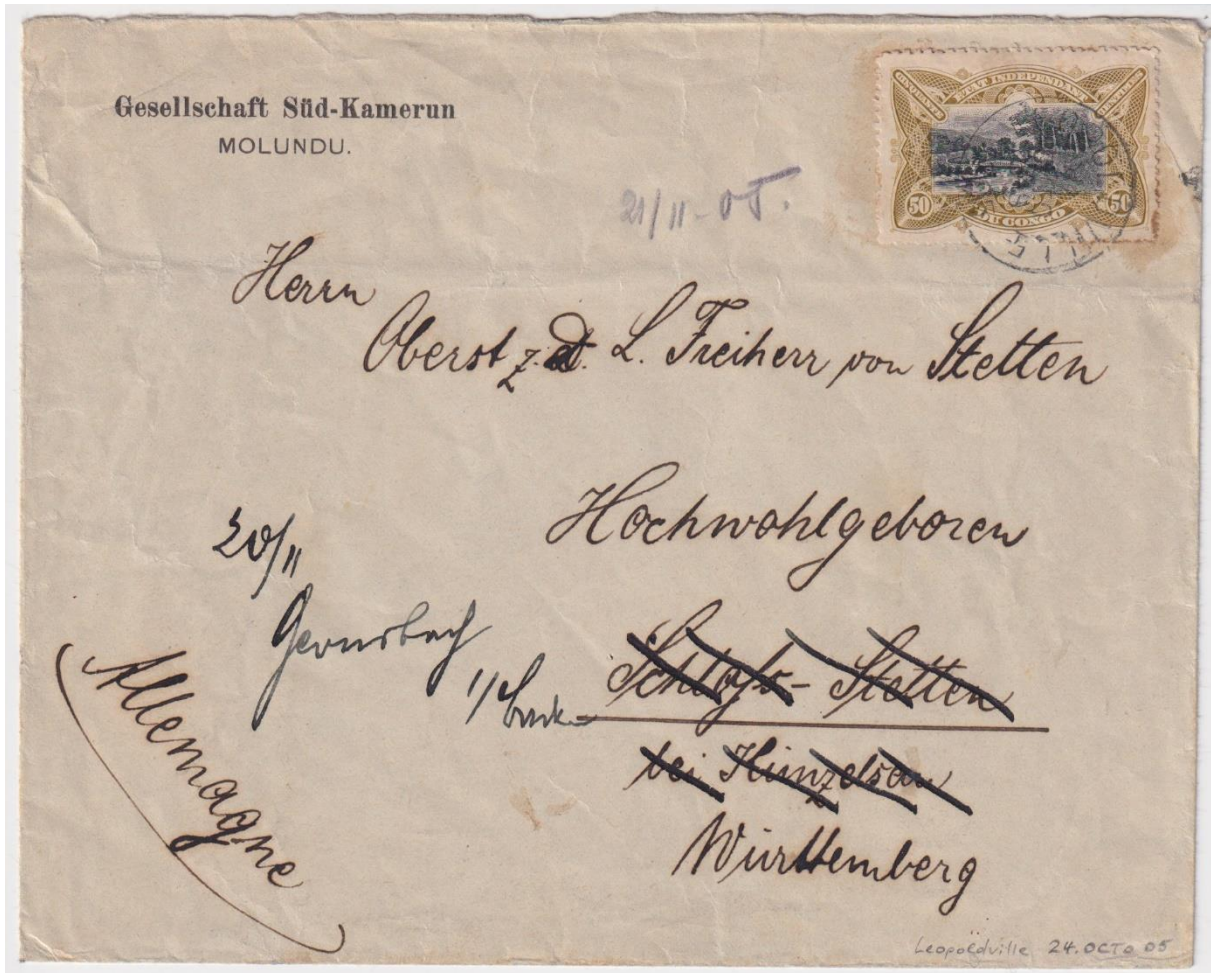 Gesellschaft Süd-Kamerun
MOLUNDU.
CINQUANTE CENTIMES
ETAT INDEPENDANT
50 50
DU CONGO
21/11-05.
Herrn
Oberst z. D. L. Freiherr von Stetten
Hochwohlgeboren
20/11
Gernsbach
Schloß-Stetten
bei Künzelsau
Württemberg
Allemagne
Leopoldville 24.OCTO 05